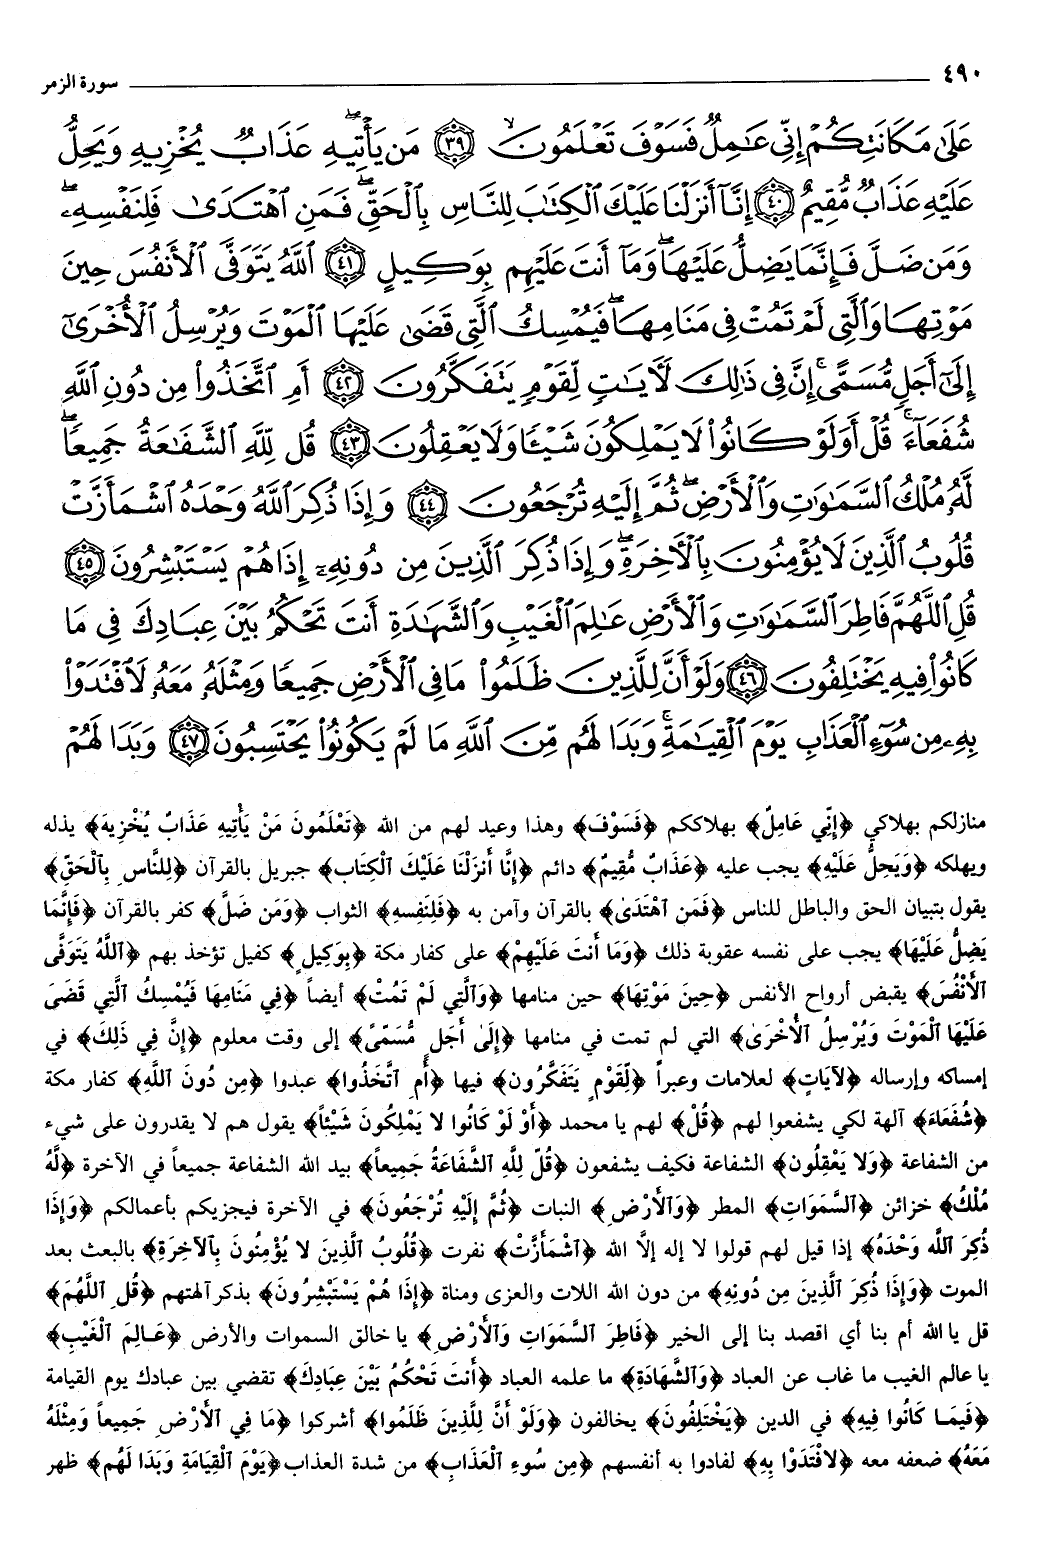 ٤٩٠ سورة الزمر
عَلَىٰ مَكَانَتِكُمْ إِنِّي عَٰمِلٌۖ فَسَوْفَ تَعْلَمُونَ ﴿٣٩﴾ مَن يَأْتِيهِ عَذَابٌ يُخْزِيهِ وَيَحِلُّ
عَلَيْهِ عَذَابٌ مُّقِيمٌ ﴿٤٠﴾ إِنَّآ أَنزَلْنَا عَلَيْكَ ٱلْكِتَٰبَ لِلنَّاسِ بِٱلْحَقِّۖ فَمَنِ ٱهْتَدَىٰ فَلِنَفْسِهِۦۖ
وَمَن ضَلَّ فَإِنَّمَا يَضِلُّ عَلَيْهَاۖ وَمَآ أَنتَ عَلَيْهِم بِوَكِيلٍ ﴿٤١﴾ ٱللَّهُ يَتَوَفَّى ٱلْأَنفُسَ حِينَ
مَوْتِهَا وَٱلَّتِي لَمْ تَمُتْ فِي مَنَامِهَاۖ فَيُمْسِكُ ٱلَّتِي قَضَىٰ عَلَيْهَا ٱلْمَوْتَ وَيُرْسِلُ ٱلْأُخْرَىٰٓ
إِلَىٰٓ أَجَلٍ مُّسَمًّىۚ إِنَّ فِي ذَٰلِكَ لَأَيَٰتٍ لِّقَوْمٍ يَتَفَكَّرُونَ ﴿٤٢﴾ أَمِ ٱتَّخَذُوا۟ مِن دُونِ ٱللَّهِ
شُفَعَآءَۚ قُلْ أَوَلَوْ كَانُوا۟ لَا يَمْلِكُونَ شَيْـًٔا وَلَا يَعْقِلُونَ ﴿٤٣﴾ قُل لِّلَّهِ ٱلشَّفَٰعَةُ جَمِيعًاۖ
لَّهُۥ مُلْكُ ٱلسَّمَٰوَٰتِ وَٱلْأَرْضِۖ ثُمَّ إِلَيْهِ تُرْجَعُونَ ﴿٤٤﴾ وَإِذَا ذُكِرَ ٱللَّهُ وَحْدَهُ ٱشْمَأَزَّتْ
قُلُوبُ ٱلَّذِينَ لَا يُؤْمِنُونَ بِٱلْأَخِرَةِۖ وَإِذَا ذُكِرَ ٱلَّذِينَ مِن دُونِهِۦٓ إِذَا هُمْ يَسْتَبْشِرُونَ ﴿٤٥﴾
قُلِ ٱللَّهُمَّ فَاطِرَ ٱلسَّمَٰوَٰتِ وَٱلْأَرْضِ عَٰلِمَ ٱلْغَيْبِ وَٱلشَّهَٰدَةِ أَنتَ تَحْكُمُ بَيْنَ عِبَادِكَ فِي مَا
كَانُوا۟ فِيهِ يَخْتَلِفُونَ ﴿٤٦﴾ وَلَوْ أَنَّ لِلَّذِينَ ظَلَمُوا۟ مَا فِي ٱلْأَرْضِ جَمِيعًا وَمِثْلَهُۥ مَعَهُۥ لَٱفْتَدَوْا۟
بِهِۦ مِن سُوٓءِ ٱلْعَذَابِ يَوْمَ ٱلْقِيَٰمَةِۚ وَبَدَا لَهُم مِّنَ ٱللَّهِ مَا لَمْ يَكُونُوا۟ يَحْتَسِبُونَ ﴿٤٧﴾ وَبَدَا لَهُمْ
منازلكم بهلاكي ﴿إِنِّي عَامِلٌ﴾ بهلاككم ﴿فَسَوْفَ﴾ وهذا وعيد لهم من الله ﴿تَعْلَمُونَ مَنْ يَأْتِيهِ عَذَابٌ يُخْزِيهَ﴾ يذله
ويهلكه ﴿وَيَحِلُّ عَلَيْهِ﴾ يجب عليه ﴿عَذَابٌ مُّقِيمٌ﴾ دائم ﴿إِنَّا أَنزَلْنَا عَلَيْكَ ٱلْكِتَاب﴾ جبريل بالقرآن ﴿لِلنَّاسِ بِٱلْحَقِّ﴾
يقول بتبيان الحق والباطل للناس ﴿فَمَن ٱهْتَدَىٰ﴾ بالقرآن وآمن به ﴿فَلِنَفْسِهِ﴾ الثواب ﴿وَمَن ضَلَّ﴾ كفر بالقرآن ﴿فَإِنَّمَا
يَضِلُّ عَلَيْهَا﴾ يجب على نفسه عقوبة ذلك ﴿وَمَا أَنتَ عَلَيْهِمْ﴾ على كفار مكة ﴿بِوَكِيلٍ﴾ كفيل تؤخذ بهم ﴿ٱللَّهُ يَتَوَفَّى
ٱلْأَنْفُسَ﴾ يقبض أرواح الأنفس ﴿حِينَ مَوْتِهَا﴾ حين منامها ﴿وَٱلَّتِي لَمْ تَمُتْ﴾ أيضاً ﴿فِي مَنَامِهَا فَيُمْسِكُ ٱلَّتِي قَضَىَ
عَلَيْهَا ٱلْمَوْتَ وَيُرْسِلُ ٱلْأُخْرَىٰ﴾ التي لم تمت في منامها ﴿إِلَىٰ أَجَلٍ مُّسَمًّىَ﴾ إلى وقت معلوم ﴿إِنَّ فِي ذَلِكَ﴾ في
إمساكه وإرساله ﴿لآيَاتٍ﴾ لعلامات وعبراً ﴿لِّقَوْمٍ يَتَفَكَّرُون﴾ فيها ﴿أَمِ ٱتَّخَذُوا﴾ عبدوا ﴿مِن دُونَ ٱللَّهِ﴾ كفار مكة
﴿شُفَعَاءَ﴾ آلهة لكي يشفعوا لهم ﴿قُلْ﴾ لهم يا محمد ﴿أَوَ لَوْ كَانُوا لا يَمْلِكُونَ شَيْئاً﴾ يقول هم لا يقدرون على شيء
من الشفاعة ﴿وَلا يَعْقِلُون﴾ الشفاعة فكيف يشفعون ﴿قُلّ لِلَّهِ ٱلشَّفَاعَةُ جَمِيعاً﴾ بيد الله الشفاعة جميعاً في الآخرة ﴿لَّهُ
مُلْكُ﴾ خزائن ﴿ٱلسَّمَوَاتِ﴾ المطر ﴿وَٱلأَرْضِ﴾ النبات ﴿ثُمَّ إِلَيْهِ تُرْجَعُونَ﴾ في الآخرة فيجزيكم بأعمالكم ﴿وَإِذَا
ذُكِرَ ٱللَّه وَحْدَهُ﴾ إذا قيل لهم قولوا لا إله إلَّا الله ﴿ٱشْمَأَزَّتْ﴾ نفرت ﴿قُلُوبُ ٱلَّذِينَ لا يُؤْمِنُونَ بِٱلآخِرَةِ﴾ بالبعث بعد
الموت ﴿وَإِذَا ذُكِرَ ٱلَّذِينَ مِن دُونِهِ﴾ من دون الله اللات والعزى ومناة ﴿إِذَا هُمْ يَسْتَبْشِرُونَ﴾ بذكر آلهتهم ﴿قُلِ ٱللَّهُمَ﴾
قل يا الله أم بنا أي اقصد بنا إلى الخير ﴿فَاطِرَ ٱلسَّمَوَاتِ وَٱلأَرْضِ﴾ يا خالق السموات والأرض ﴿عَالِمَ ٱلْغَيْبِ﴾
يا عالم الغيب ما غاب عن العباد ﴿وَٱلشَّهَادَةِ﴾ ما علمه العباد ﴿أَنتَ تَحْكُمُ بَيْنَ عِبَادِكَ﴾ تقضي بين عبادك يوم القيامة
﴿فَيمَا كَانُوا فِيهِ﴾ في الدين ﴿يَخْتَلِفُونَ﴾ يخالفون ﴿وَلَوْ أَنَّ لِلَّذِينَ ظَلَمُوا﴾ أشركوا ﴿مَا فِي ٱلأَرْضِ جَمِيعاً وَمِثْلَهُ
مَعَهُ﴾ ضعفه معه ﴿لافْتَدَوْا بِهِ﴾ لفادوا به أنفسهم ﴿مِن سُوءِ ٱلْعَذَابِ﴾ من شدة العذاب ﴿يَوْمَ ٱلْقِيَامَةِ وَبَدَا لَهُم﴾ ظهر